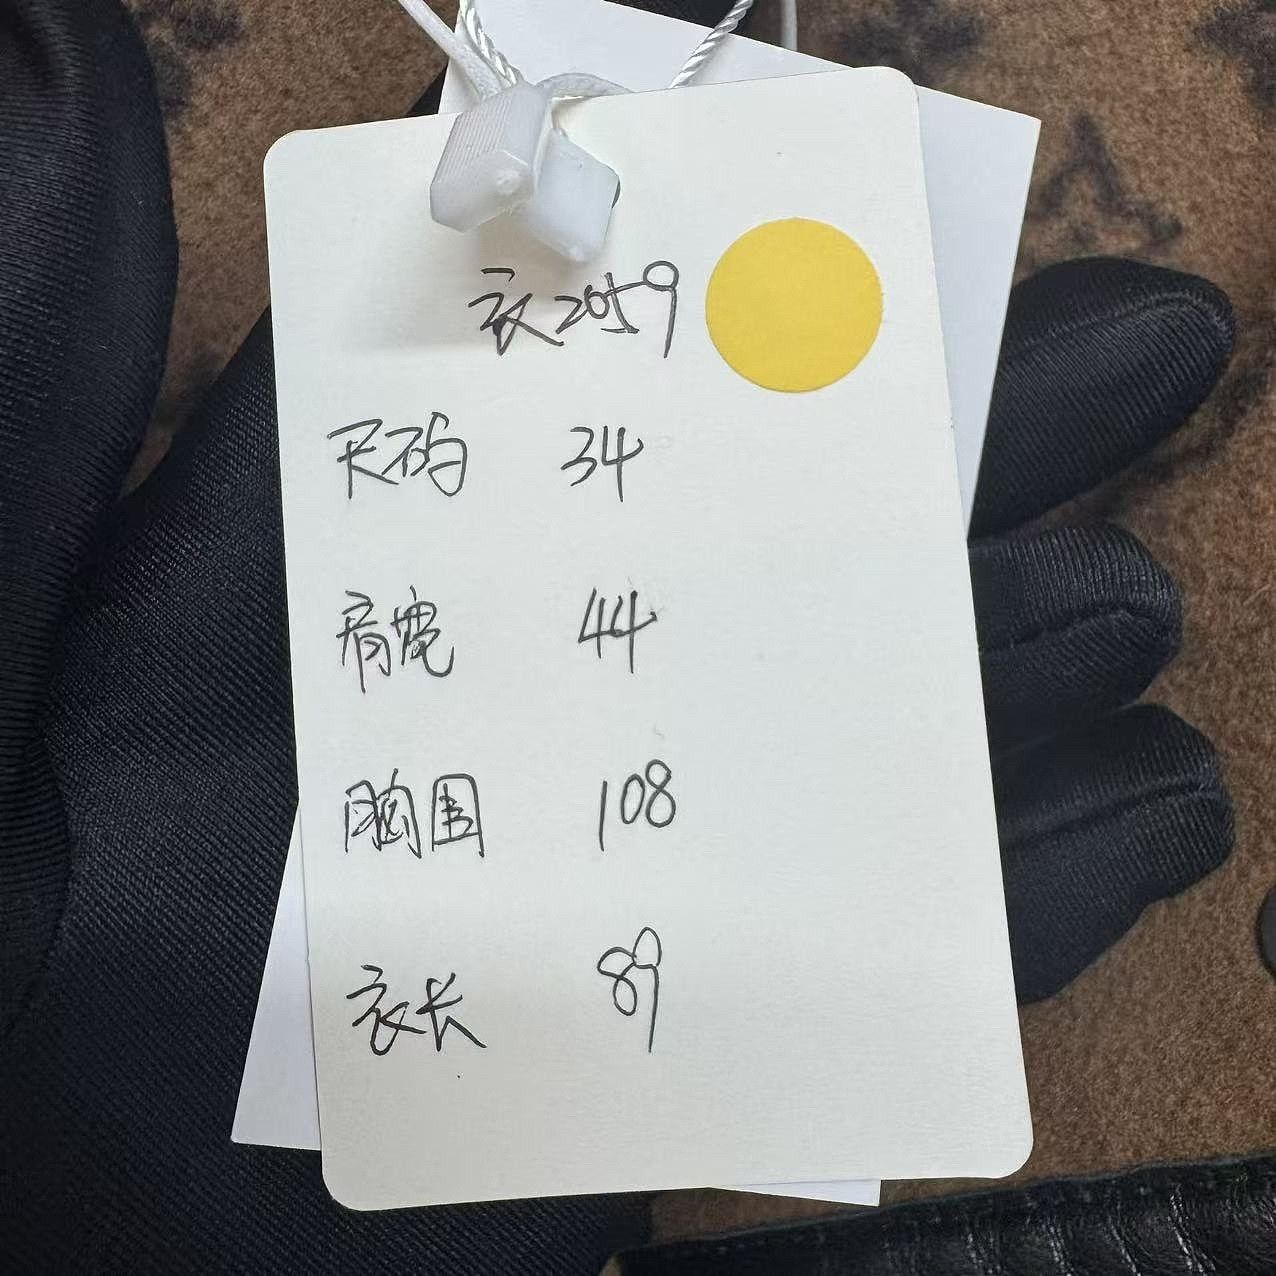 衣2059
尺码 34
肩宽 44
胸围 108
衣长 89